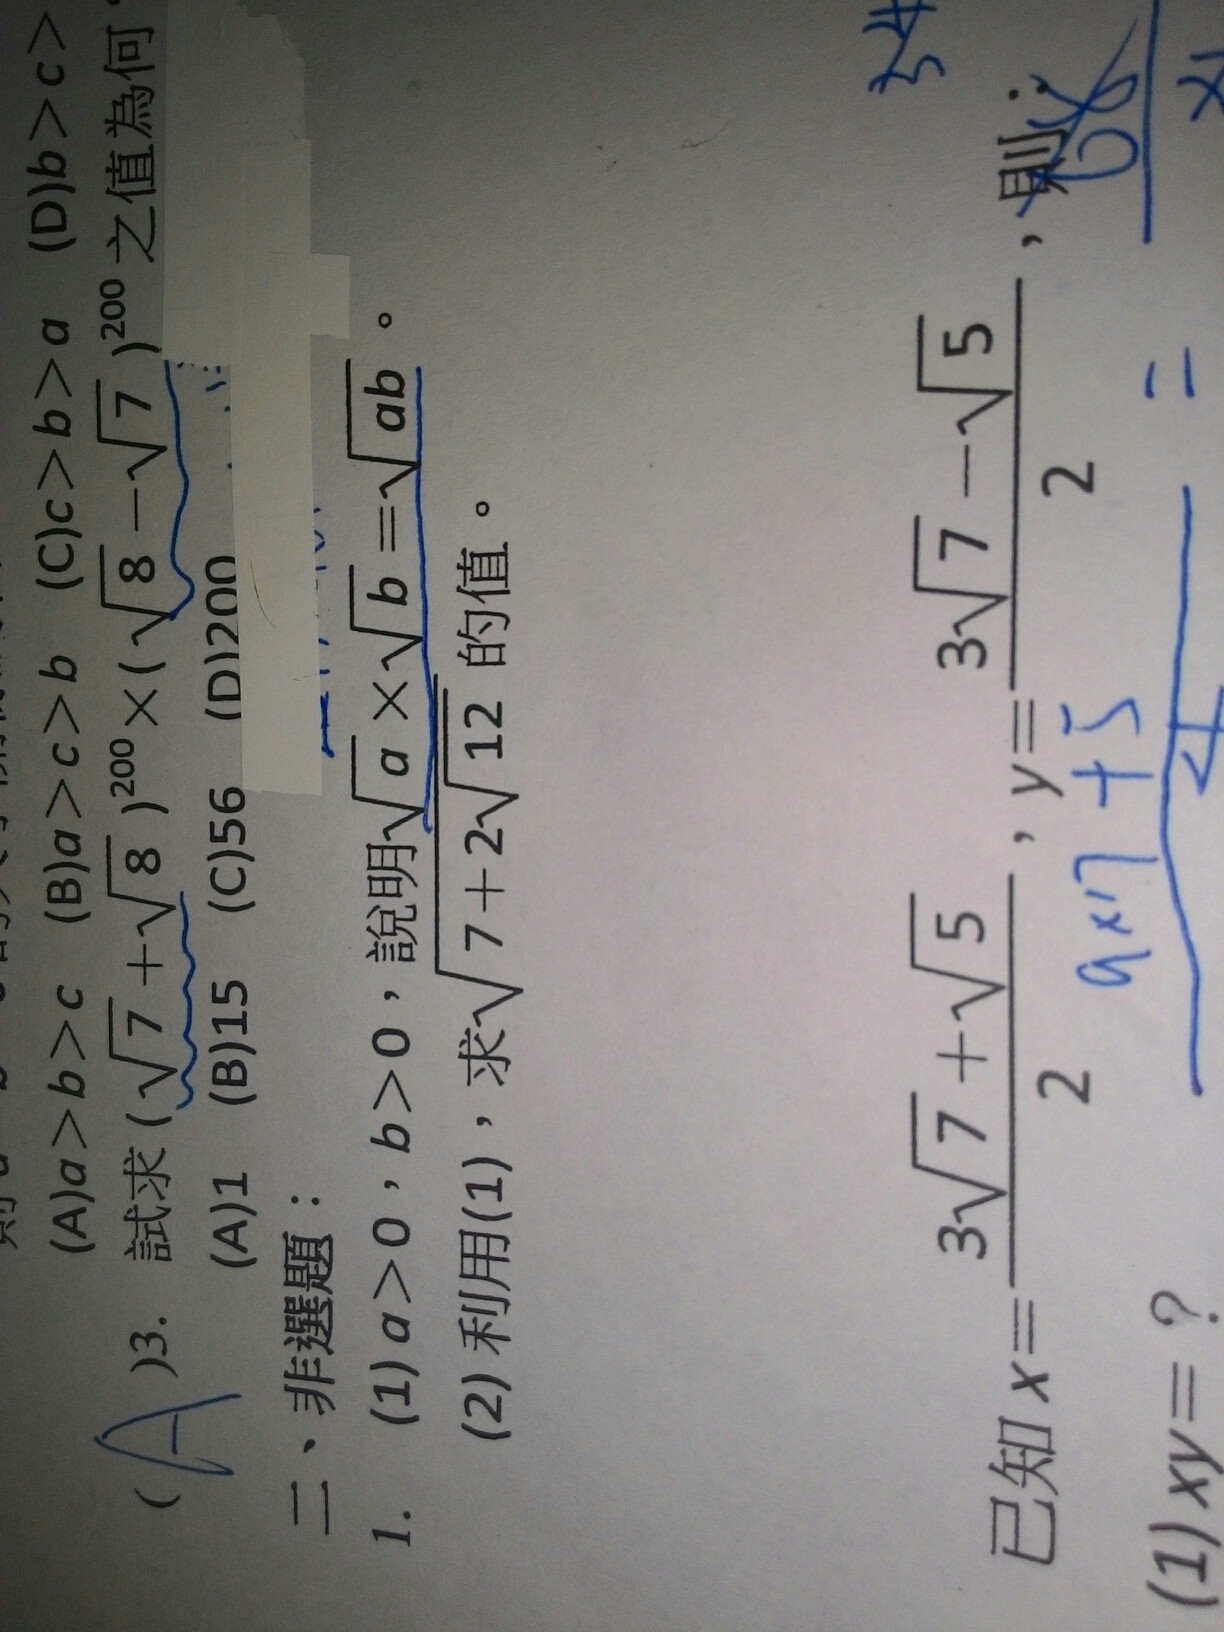 (A)a＞b＞c (B)a＞c＞b (C)c＞b＞a (D)b＞c＞
( A )3. 試求(√7+√8)²⁰⁰×(√8−√7)²⁰⁰之值為何
(A)1 (B)15 (C)56 (D)200
二、非選題：
1. (1) a＞0，b＞0，說明√a×√b=√ab。
(2) 利用(1)，求√(7+2√12) 的值。
34
已知 x=(3√7+√5)/2，y=(3√7−√5)/2，則：
9×7+5
=
68
(1) xy=？
4